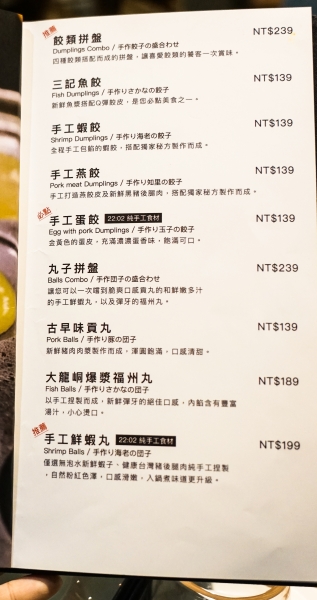 推薦
餃類拼盤 NT$239
Dumplings Combo / 手作餃子の盛合わせ
四種餃類搭配而成的拼盤，讓喜愛餃類的饕客一次賞味。
三記魚餃 NT$139
Fish Dumplings / 手作りさかなの餃子
新鮮魚漿搭配Q彈餃皮，是您必點美食之一。
手工蝦餃 NT$139
Shrimp Dumplings / 手作り海老の餃子
全程手工包餡的蝦餃，搭配獨家秘方製作而成。
手工燕餃 NT$139
Pork meat Dumplings / 手作り知里の餃子
手工打造燕餃皮及新鮮黑豬後腿肉，搭配獨家秘方製作而成。
必點
手工蛋餃 22:02 純手工食材 NT$139
Egg with pork Dumplings / 手作り玉子の餃子
金黃色的蛋皮，充滿濃濃蛋香味，飽滿可口。
丸子拼盤 NT$239
Balls Combo / 手作団子の盛合わせ
讓您可以一次嚐到脆爽口感貢丸的和鮮嫩多汁
的手工鮮蝦丸，以及彈牙的福州丸。
古早味貢丸 NT$139
Pork Balls / 手作り豚の団子
新鮮豬肉肉漿製作而成，渾圓飽滿，口感清甜。
大龍峒爆漿福州丸 NT$189
Fish Balls / 手作りさかなの団子
以手工捏製而成，新鮮彈牙的絕佳口感，內餡含有豐富
湯汁，小心燙口。
推薦
手工鮮蝦丸 22:02 純手工食材 NT$199
Shrimp Balls / 手作り海老の団子
僅選無泡水新鮮蝦子、健康台灣豬後腿肉純手工捏製
，自然粉紅色澤，口感滑嫩，入鍋煮味道更升級。